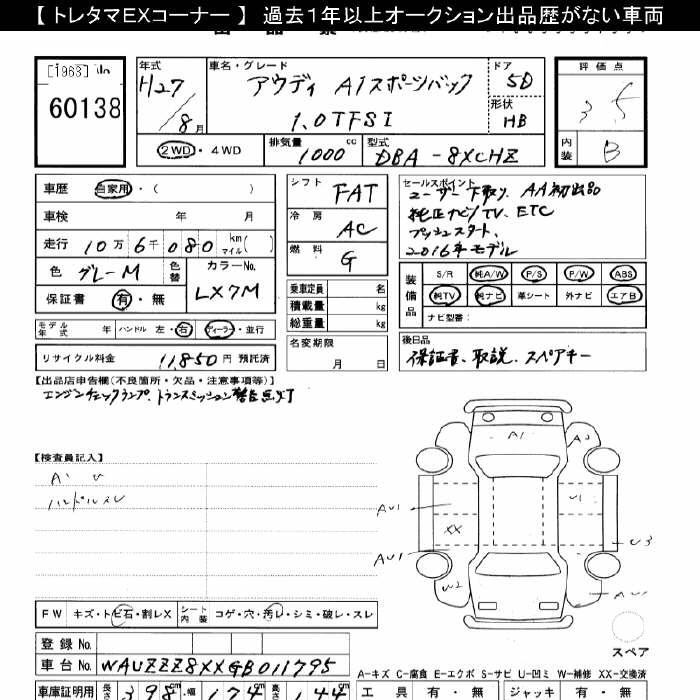 【トレタマEXコーナー】 過去1年以上オークション出品歴がない車両
[1963] No
60138
年式
H27
/8月
車名・グレード
アウディ A1スポーツバック
1.0TFSI
ドア
5D
形状
HB
評価点
3.5
内装
B
2WD・4WD
排気量
1000cc
型式
DBA-8XCHZ
車歴 自家用・( )
車検 年 月
走行 10万6千080 km マイル( )
色 グレーM
色替
カラーNo.
LX7M
保証書 有・無
シフト
FAT
冷房
AC
燃料
G
乗車定員 名
積載量 kg
総重量 kg
セールスポイント
ユーザー下取り、AA初出品
純正ナビ/TV、ETC
プッシュスタート、
2016年モデル
装備品
S/R 純A/W P/S P/W ABS
純TV 純ナビ 革シート 外ナビ エアB
ナビ型番:
モデル年式 年 ハンドル 左・右 ディーラー・並行
リサイクル料金 11,850円 預託済
名変期限
月 日
後日品
保証書、取説、スペアキー
【出品店申告欄(不良箇所・欠品・注意事項等)】
エンジンチェックランプ、トランスミッション警告点灯
【検査員記入】
A・U
ハンドルスレ
A1
A2
AU1
U1
XX
AU1
U3
W2
スペア
FW キズ・トビ石・割レX
シート内装 コゲ・穴・汚レ・シミ・破レ・スレ
登録No.
車台No. WAUZZZ8XXGB011795
A-キズ C-腐食 E-エクボ S-サビ U-凹ミ W-補修 XX-交換済
車庫証明用 長さ 398cm 幅 174cm 高さ 144cm
工具 有・無 ジャッキ 有・無